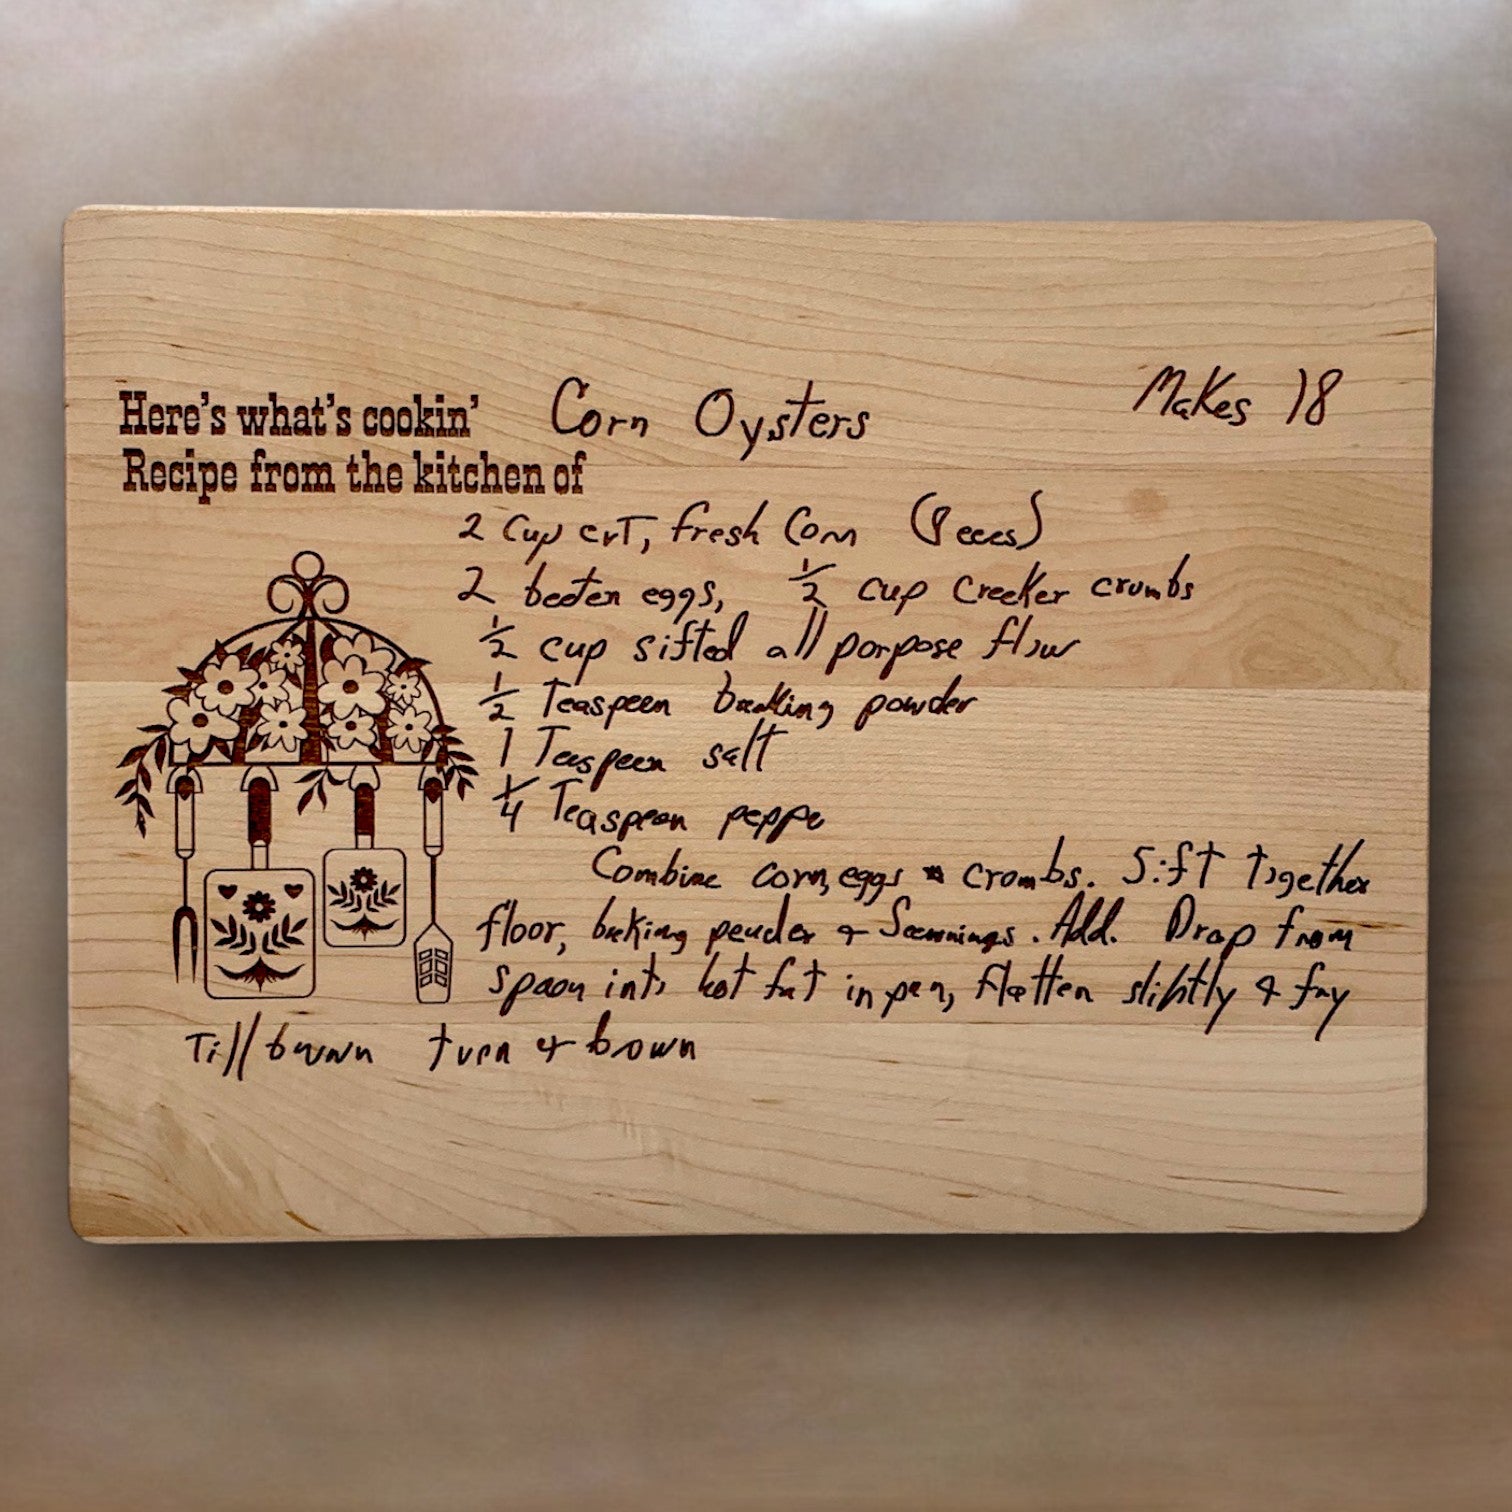 Here's what's cookin' Corn Oysters Makes 18
Recipe from the kitchen of
2 cup cut, fresh Corn (8 ears)
2 beaten eggs, 1/2 cup creeker crumbs
1/2 cup sifted all porpose flour
1/2 Teaspeen baking powder
1 Teespeen salt
1/4 Teaspeon peppe
Combine corn, eggs & crombs. Sift together
floor, baking peuder & Seasonings. Add. Drop from
spoon into hot fat in pan, flatten slihtly & fry
Till brown turn & brown